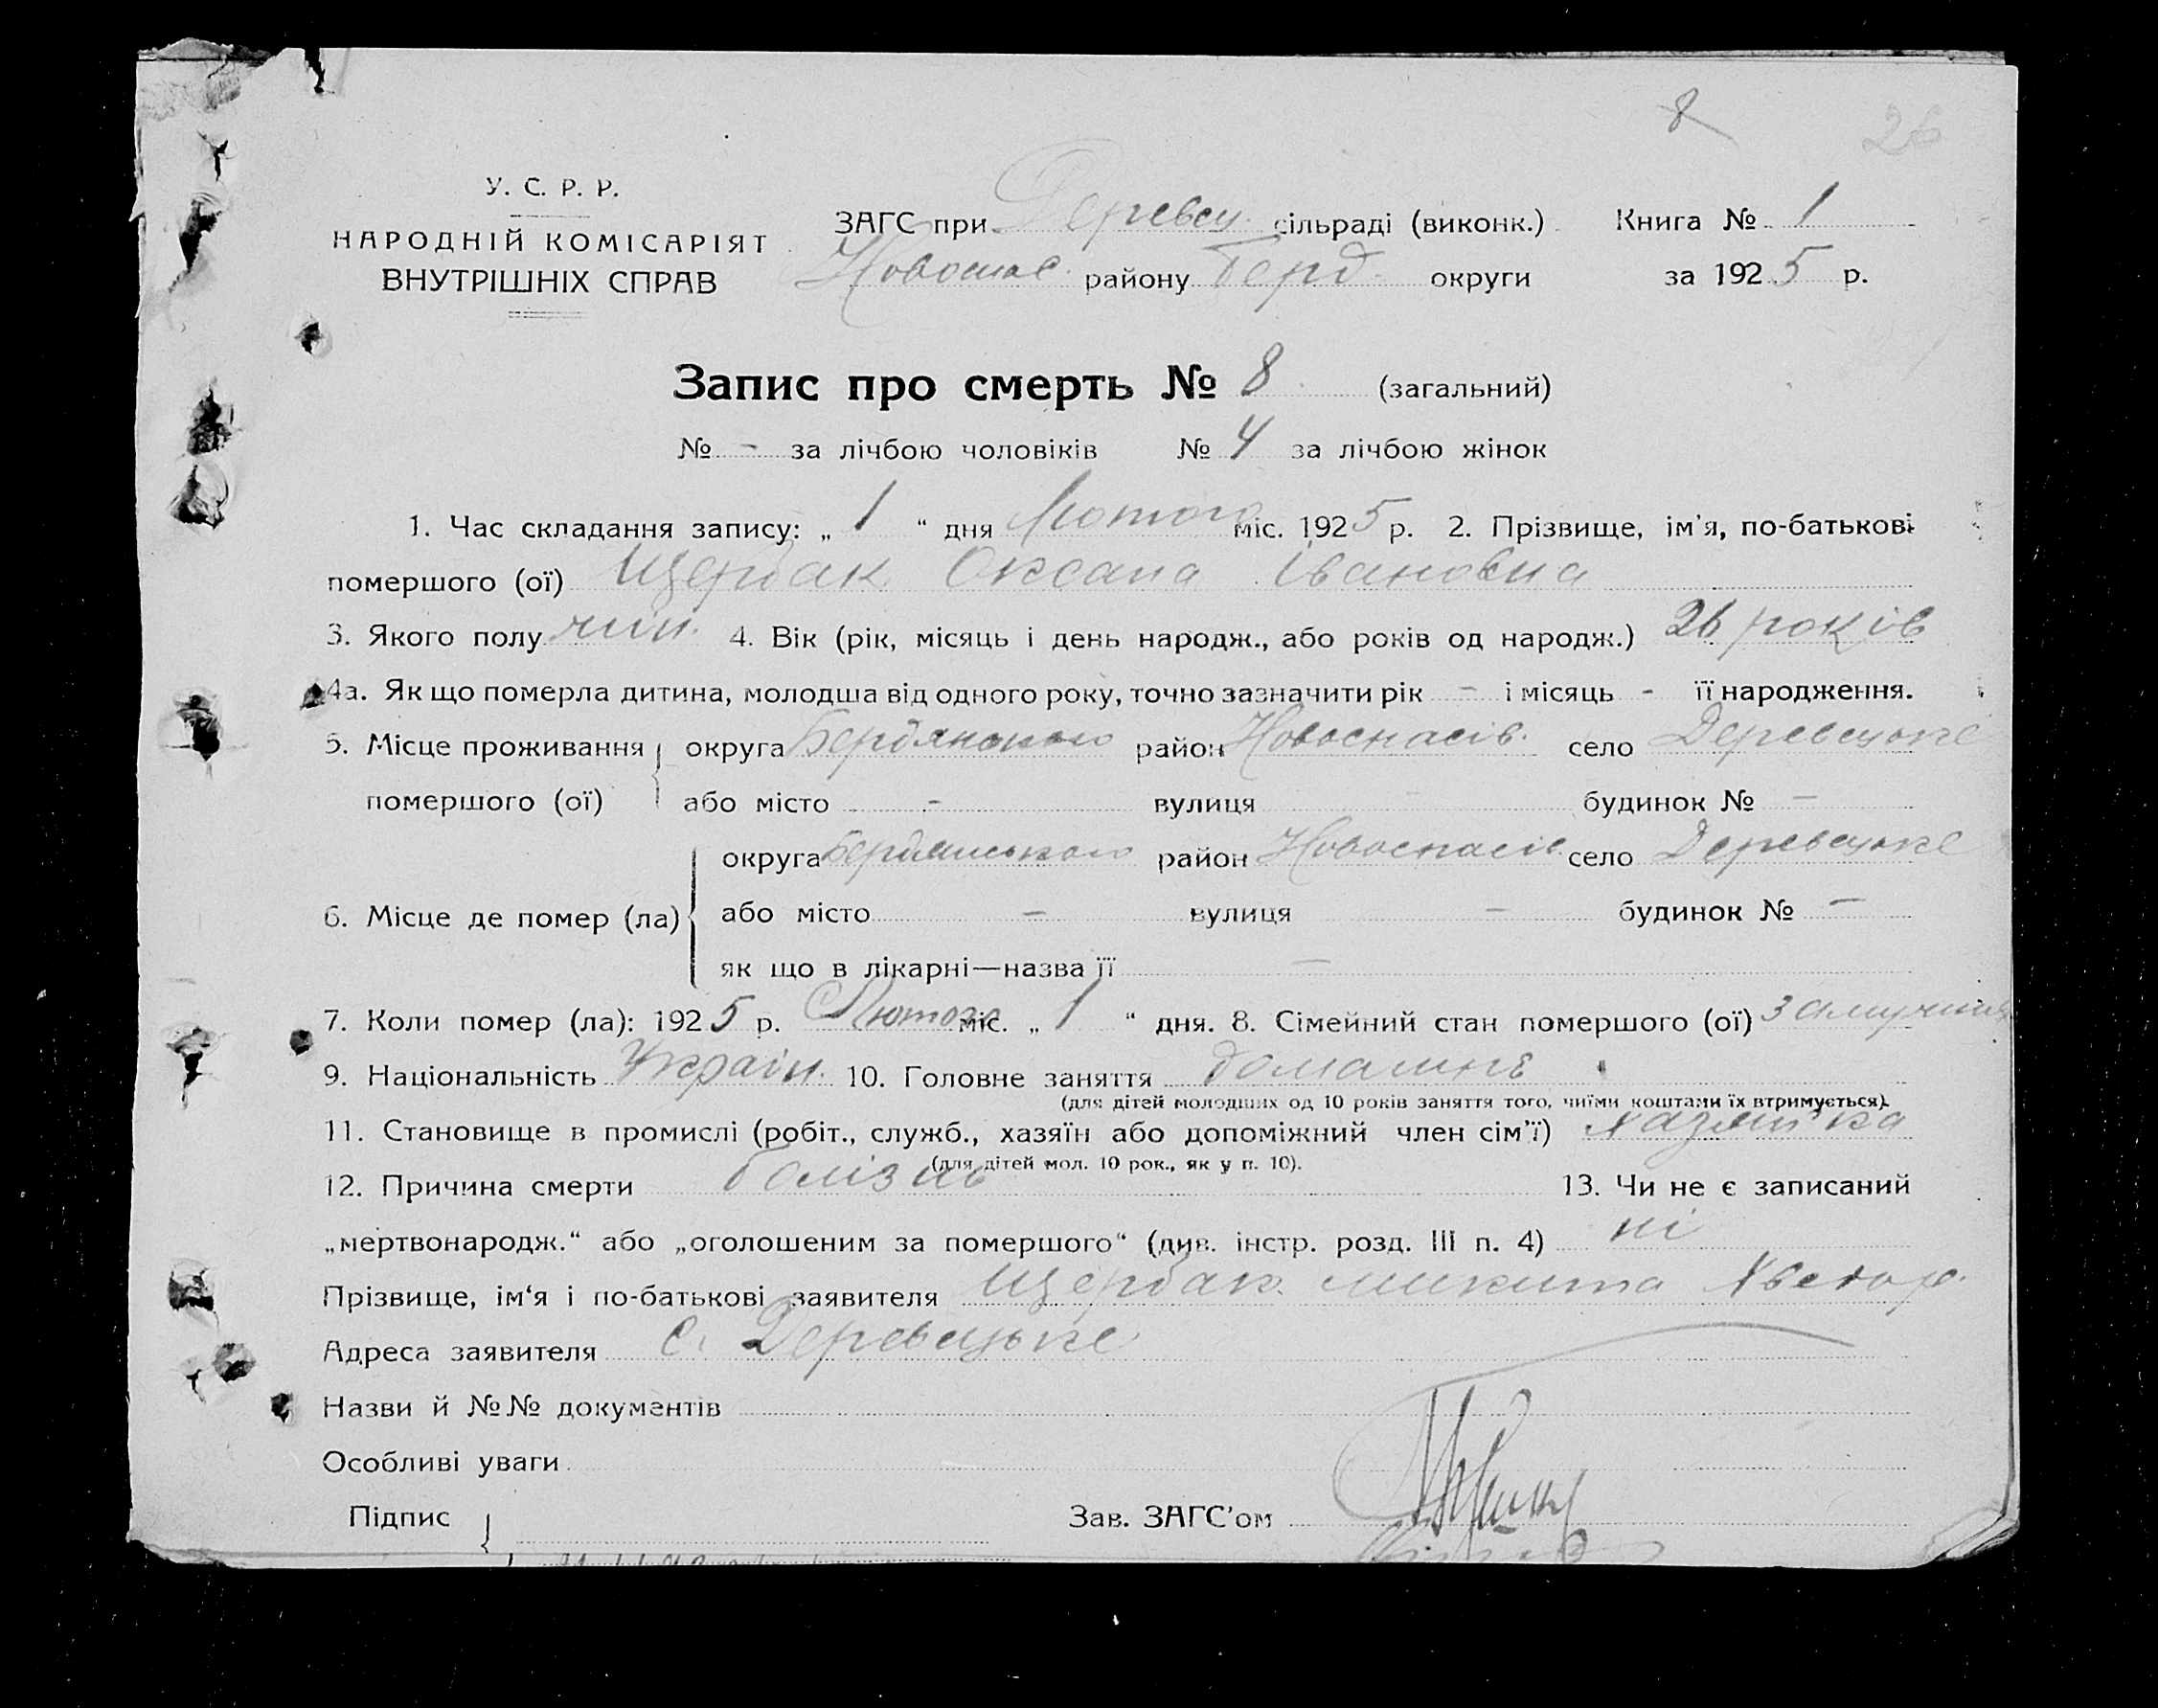 8 26
У. С. Р. Р.
НАРОДНІЙ КОМІСАРІЯТ
ВНУТРІШНІХ СПРАВ
ЗАГС при Деревец. сільраді (виконк.) Книга № 1
Новоспас. району Берд. округи за 1925 р.
Запис про смерть № 8 (загальний)
№ - за лічбою чоловіків № 4 за лічбою жінок
1. Час складання запису: „ 1 “ дня Лютого міс. 1925 р. 2. Прізвище, ім'я, по-батькові
помершого (ої) Щербак Оксана Івановна
3. Якого полу жін. 4. Вік (рік, місяць і день народж., або років од народж.) 26 років
4а. Як що померла дитина, молодша від одного року, точно зазначити рік - і місяць - її народження.
5. Місце проживання округа Бердянського район Новоспасів. село Деревецьке
помершого (ої) або місто - вулиця - будинок № -
округа Бердянського район Новоспасів. село Деревецьке
6. Місце де помер (ла) або місто - вулиця - будинок № -
як що в лікарні—назва її —
7. Коли помер (ла): 1925 р. Лютого міс. „ 1 “ дня. 8. Сімейний стан помершого (ої) замужня
9. Національність Україн. 10. Головне заняття домашнє
(для дітей молодших од 10 років заняття того, чиїми коштами їх втримується).
11. Становище в промислі (робіт., служб., хазяїн або допоміжний член сім'ї) хазяйка
(для дітей мол. 10 рок., як у п. 10).
12. Причина смерти болізнь 13. Чи не є записаний
„мертвонародж.“ або „оголошеним за помершого“ (див. інстр. розд. III п. 4) ні
Прізвище, ім‘я і по-батькові заявителя Щербак Микита Хведор.
Адреса заявителя с. Деревецьке
Назви й №№ документів
Особливі уваги
Підпис Зав. ЗАГС'ом